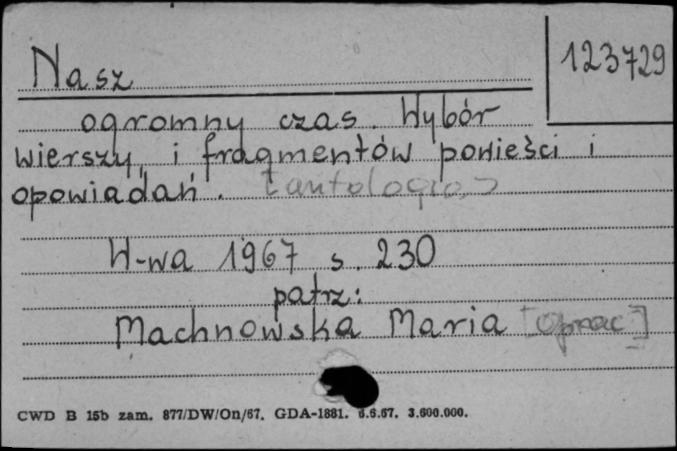 123729
Nasz
ogromny czas. Wybór
wierszy i fragmentów powieści i
opowiadań. [antologia]
W-wa 1967 s. 230
patrz:
Machnowska Maria [oprac]
CWD B 15b zam. 877/DW/On/67. GDA-1881. 6.6.67. 3.600.000.